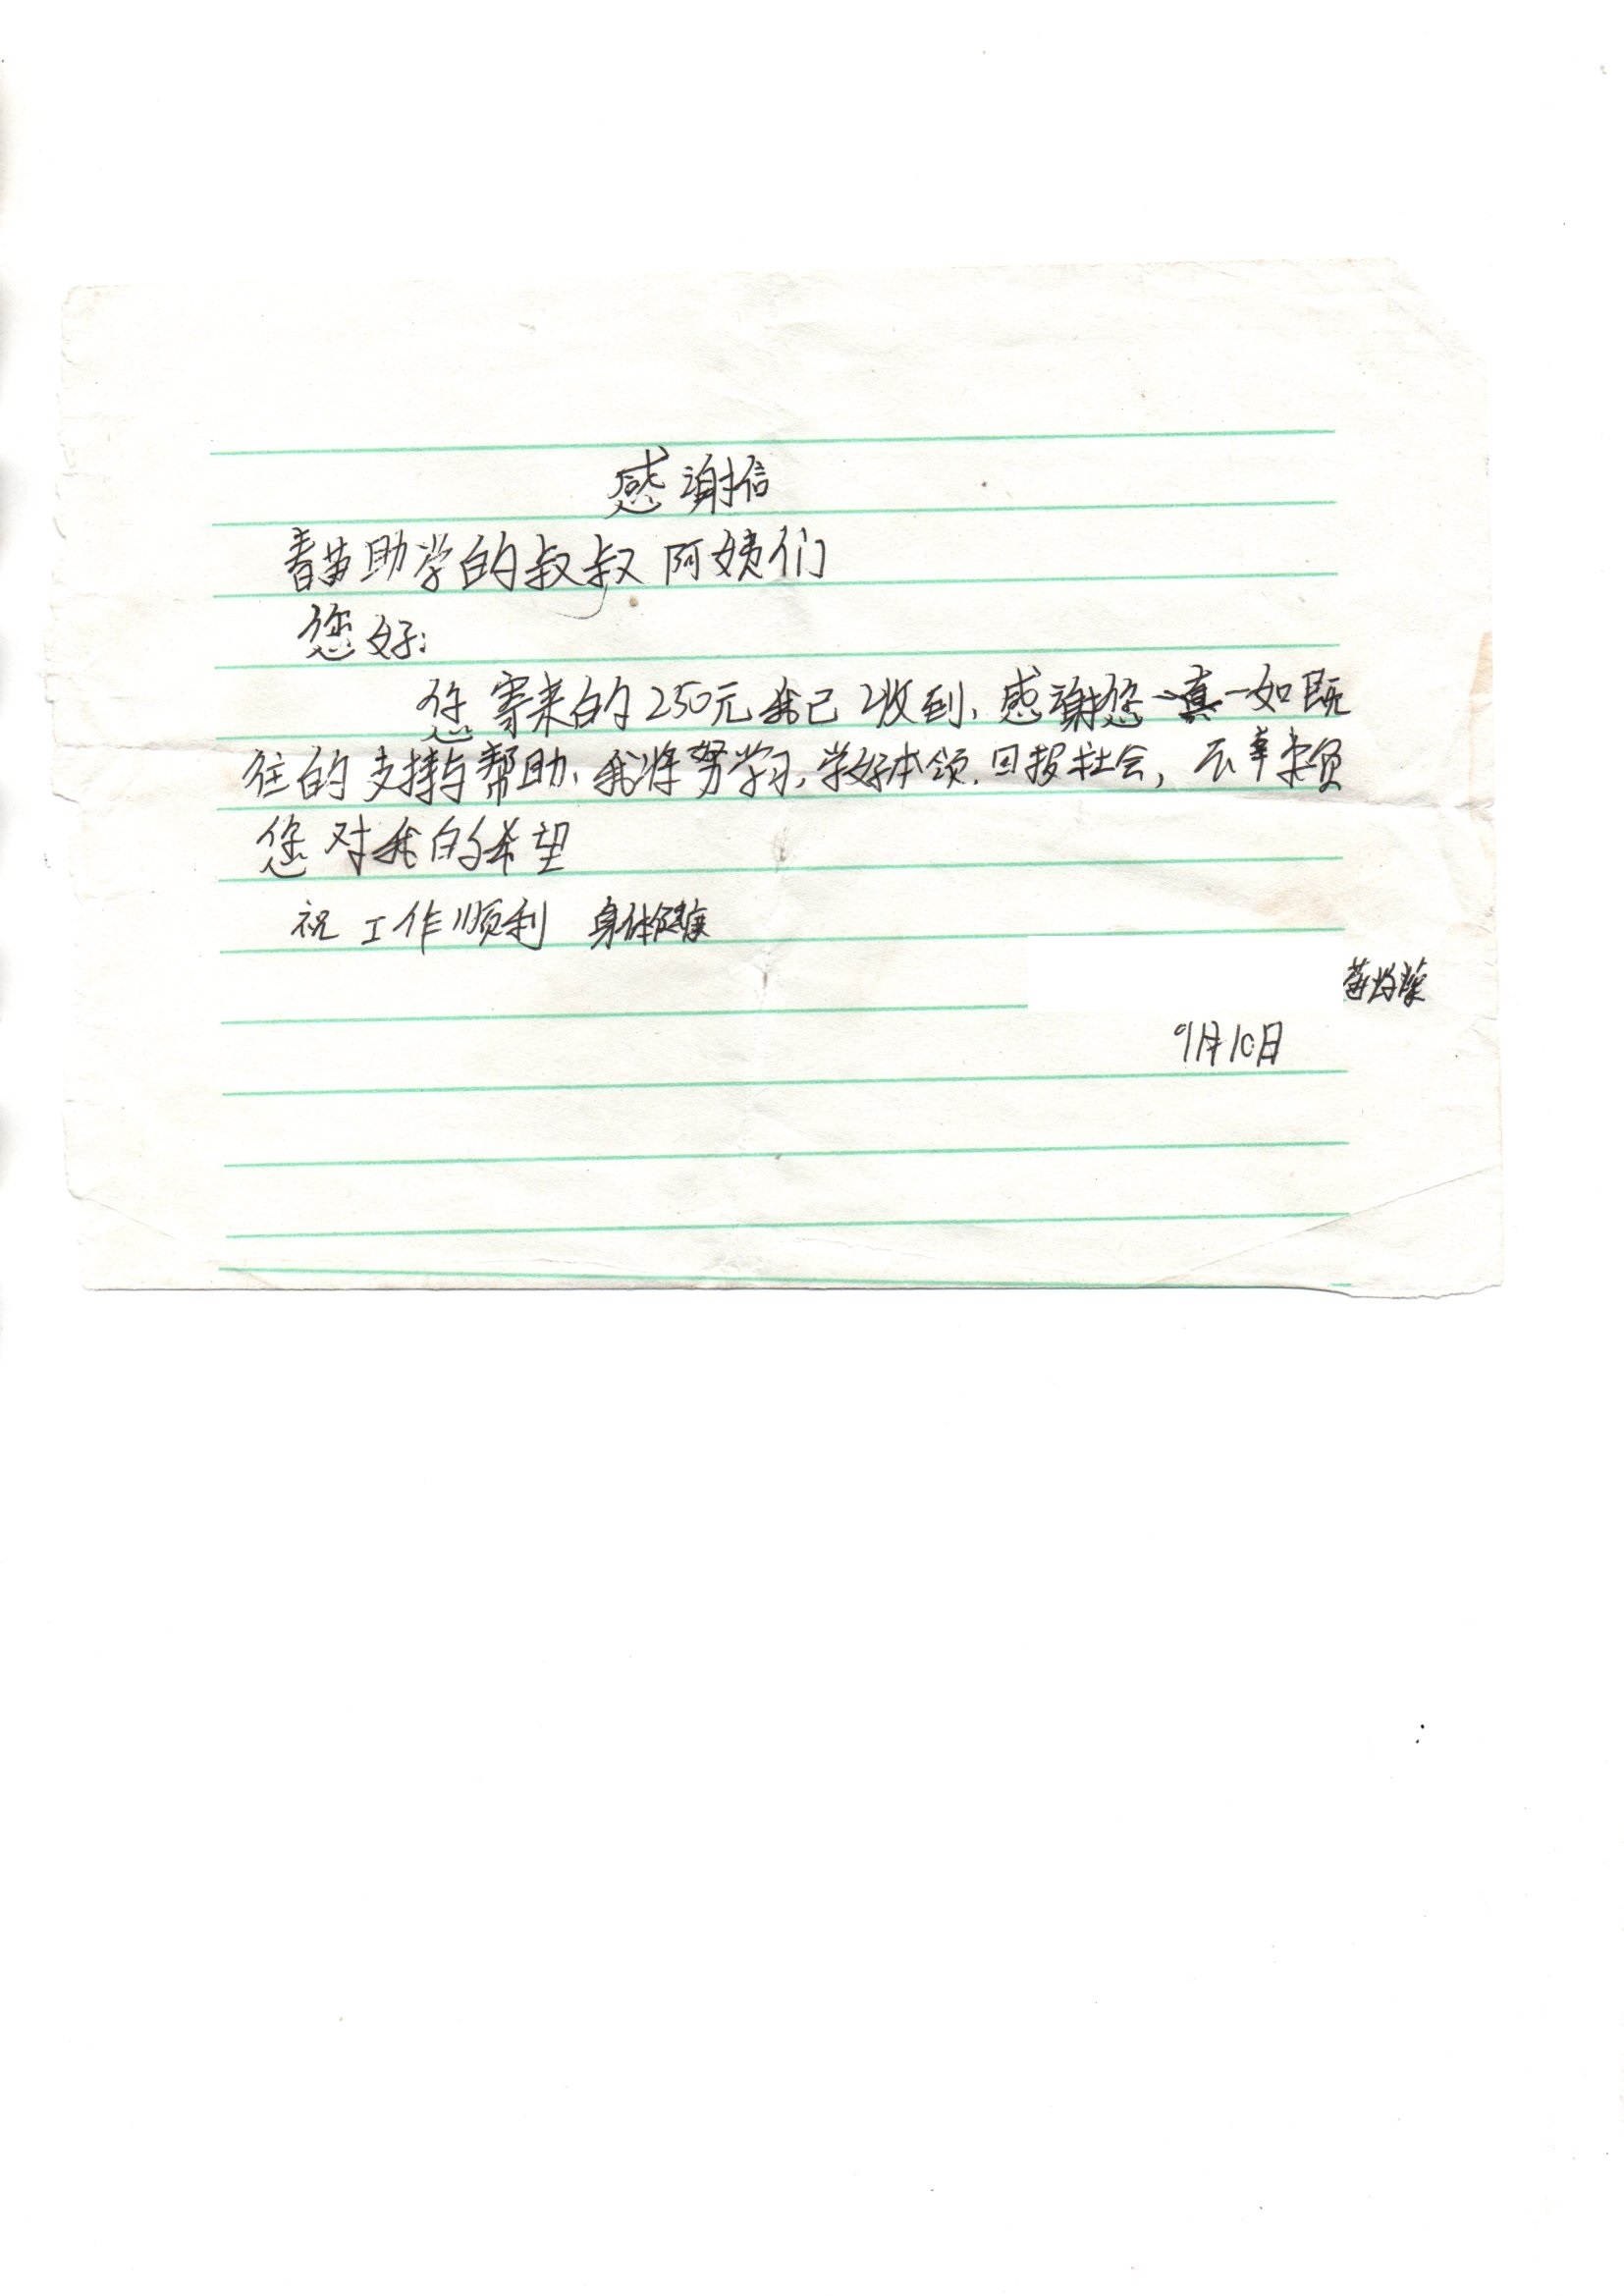 感谢信
春苗助学的叔叔阿姨们
您好:
您寄来的250元我已收到、感谢您一如既
往的支持与帮助、我将努学习,学好本领.回报社会,不辜负
您对我的希望
祝 工作顺利 身体健康
9月10日